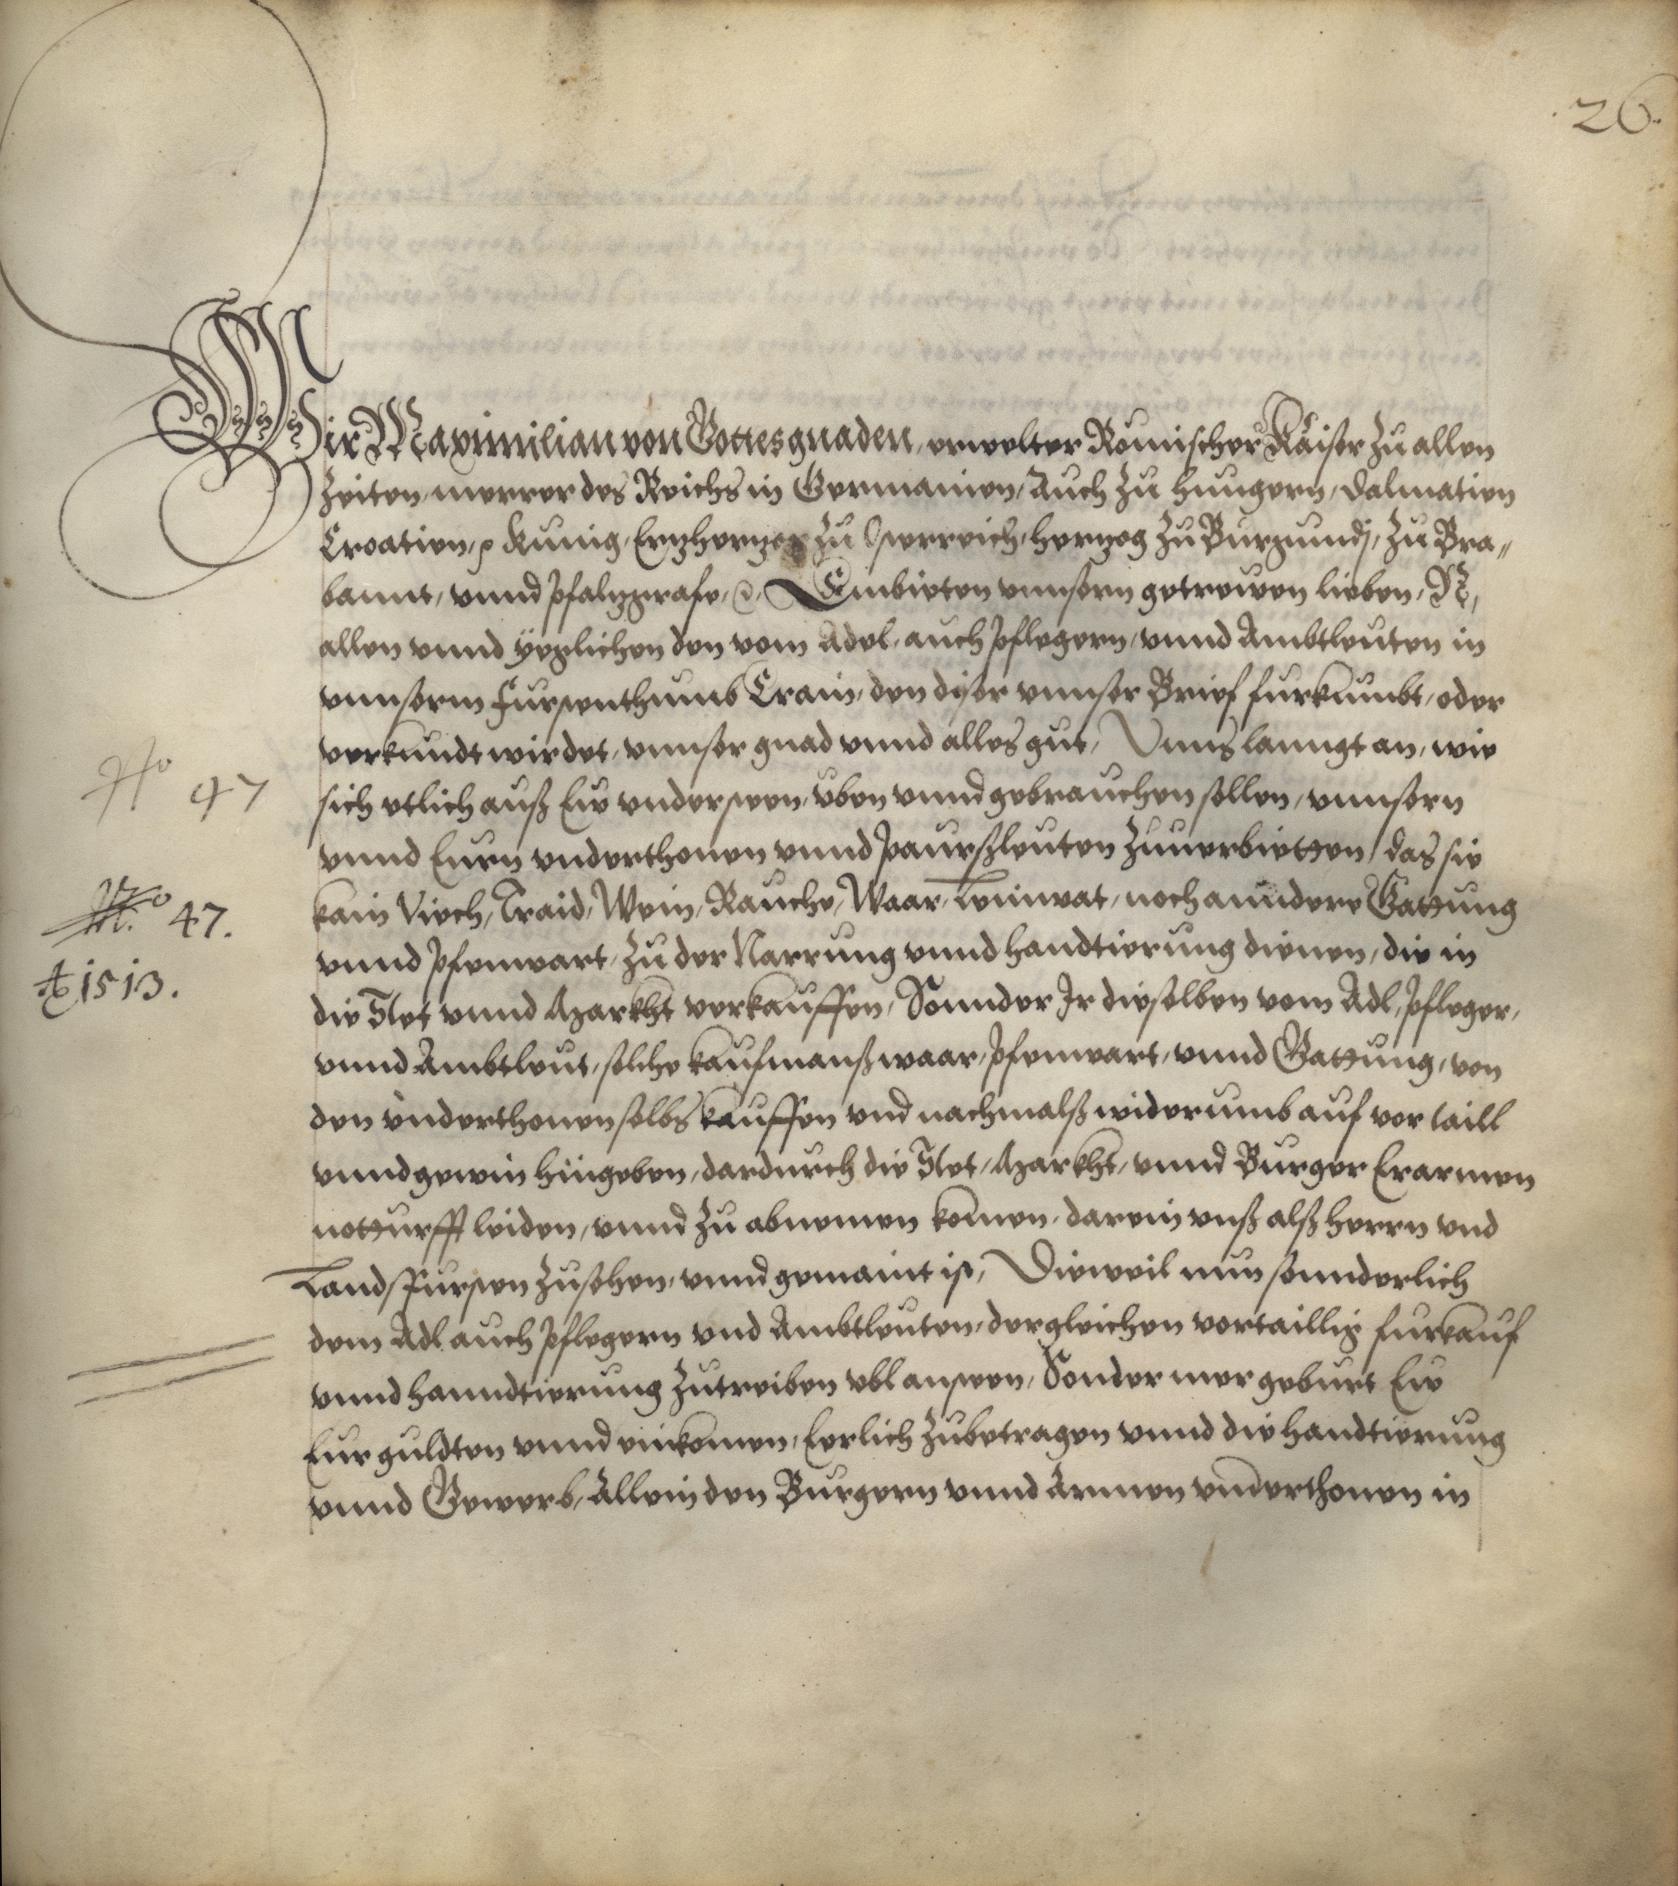 26.
Wir Maximilian von Gottes gnaden, erwelter Römischer Kaiser zu allen
Zeiten, merrer des Reichs in Germanien, Auch zu Hungern, Dalmatien
Croatien, Kunig, Erzherzog zu Osterreich, Herzog zu Burgundj, zu Bra„
bannt, vnnd Pfalzgrafe, Embieten vnnsern getrewen lieben, N,
allen vnnd yeglichen den vom Adel, auch Pflegern, vnnd Ambtleuten in
vnnserm Furstenthumb Crain, den diser vnnser Brief furkumbt, oder
verkundt wirdet, vnnser gnad vnnd alles gut, Vnns lanngt an, wie
No 47
sich etlich auß Ew vndersteen, vben vnnd gebrauchen sollen, vnnsern
vnnd Eurn vnderthonen vnnd Paurßleuten zuuerbietten, das sie
kain Viech, Traid, Wein, Rauche, Waar, Leinwat, noch anndere Gattung
No 47.
vnnd Pfenwart, zu der Narrung vnnd handtierung dienen, die in
Ao 1513.
die Stet vnnd Markht verkauffen, Sonnder Ir dieselben vom Adl, Pfleger,
vnnd Ambtleut, solche kaufmanß waar, Pfenwart, vnnd Gattung, von
den vnderthonen selbs kauffen vnd nachmalß widerumb auf vortaill
vnnd gewin hingeben, dardurch die Stet, Markht, vnnd Burger Erarmen
notturfft leiden, vnnd zu abnemen komen, darein vnß alß Herrn vnd
Landsfursten zusehen, vnnd gemaint ist, Dieweil nun sonnderlich
dem Adl auch Pflegern vnd Ambtleuten, dergleichen vortaillig furkauf
vnnd hanndtierung zutreiben vbl ansteen, Sonder mer geburt Ew
Eur guldten vnnd einkomen, Eerlich zubetragen vnnd die handtierung
vnnd Gewerb, Allein den Burgern vnnd Armen vnderthonen in